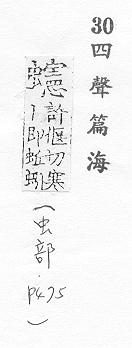 30 四聲篇海
許偃切寒
丨即蚯蚓
(虫部.P475)